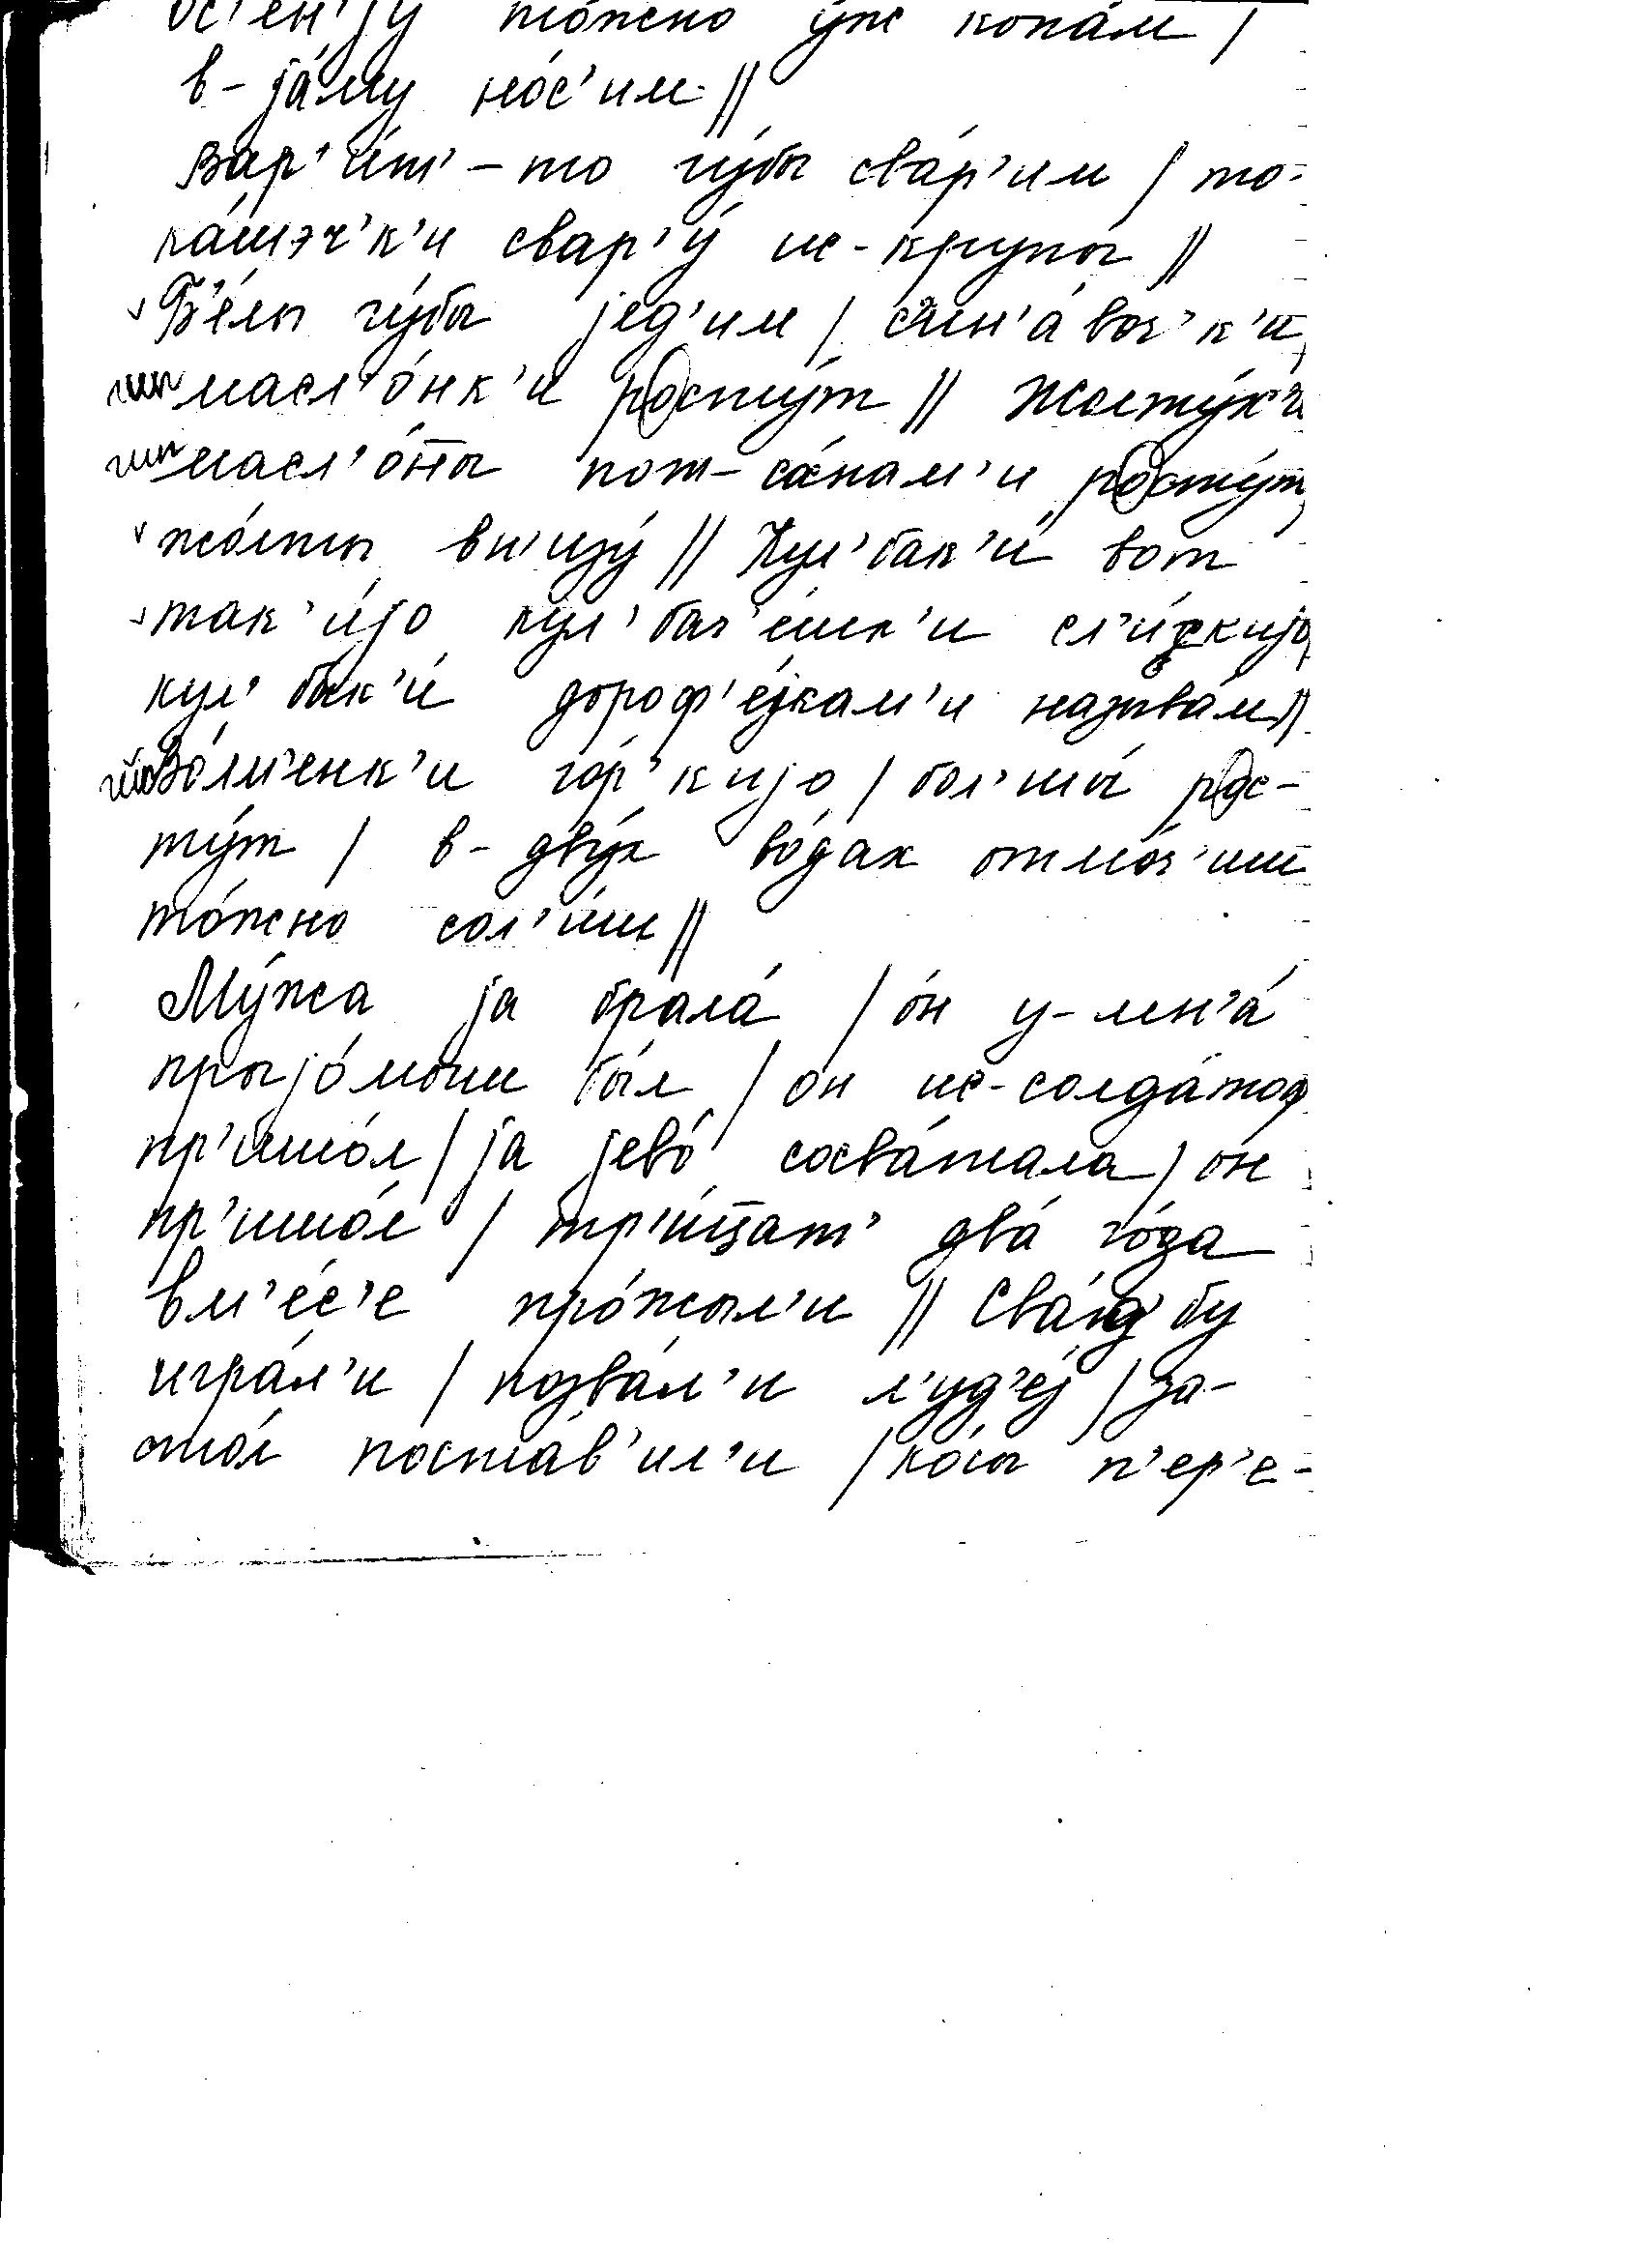 ос'ен'jу то́жно у́ж копа́м /
в-jа́му но́с'им //
Вар'и́т'-то гу́бы сва́р'им / то-
ка́шэч'к'и свар'у́ ис-крупы́ //
Б'е́лы гу́бы jед'и́м / с'ин'а́воч'к'и,
масл'о́нк'и росту́т // Желту́к'и
масл'о́ты пот-со́снам'и росту́т,
жо́лты вн'изу́ // Кул'бак'и́ вот
так'и́jо кул'бач'е́шк'и сл'и́скиjо,
кул'бак'и́ дороф'е́jкам'и называ́м //
Во́лм'енк'и го́р'киjо / бол'шы́ рос-
ту́т / в-дву́х во́дах отмо́ч'им
то́жно сол'и́м //
Му́жа jа брала́ / о́н у-мен'а́
прыjо́мыш бы́л / он ис-солда́тоф
пр'ишо́л / jа jево́ сосва́тала / о́н
пр'ишо́л / тр'и́цат' два́ го́да
вм'е́с'е про́жыл'и // Сва́д'бу
игра́л'и / позва́л'и л'уд'е́j / за-
сто́л поста́в'ил'и / ко́сы п'ер'е-